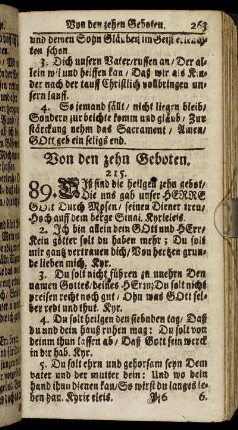 Von den zehen Geboten. 263
und deinen Sohn Gläuben im Geist erleuch-
ten schon
3. Dich unsern Vater ruffen an/ Der al-
lein wil und heissen kan/ Daß wir als Kin-
der nach der tauff Christlich vollbringen un-
sern lauff.
4. So jemand fällt/ nicht liegen bleib/
Sondern zur beichte komm und gläub/ Zur
stärckung nehm das Sacrament/ Amen/
GOtt geb ein seligs end.
Von den zehn Geboten.
215.
89. DIß sind die heilgen zehn gebot/
Die uns gab unser HERRE
GOtt Durch Mosen/ seinen Diener treu/
Hoch auff dem berge Sinai. Kyrieleis.
2. Ich bin allein dein GOtt und HErr/
Kein götter solt du haben mehr; Du solt
mir gantz vertrauen dich/ Von hertzen grun-
de lieben mich. Kyr.
3. Du solt nicht führen zu unehrn Den
namen Gottes/ deines HErrn; Du solt nicht
preisen recht noch gut/ Ohn was GOtt sel-
ber redt und thut. Kyr.
4. Du solt heilgen den siebnden tag/ Daß
du und dein hauß ruhen mag: Du solt von
deinm thun lassen ab/ Daß Gott sein werck
in dir hab. Kyr.
5. Du solt ehrn und gehorsam seyn Dem
vater und der mutter dein: Und wo dein
hand ihnn dienen kan/ So wirst du langes le-
ben han. Kyrie eleis. 6.